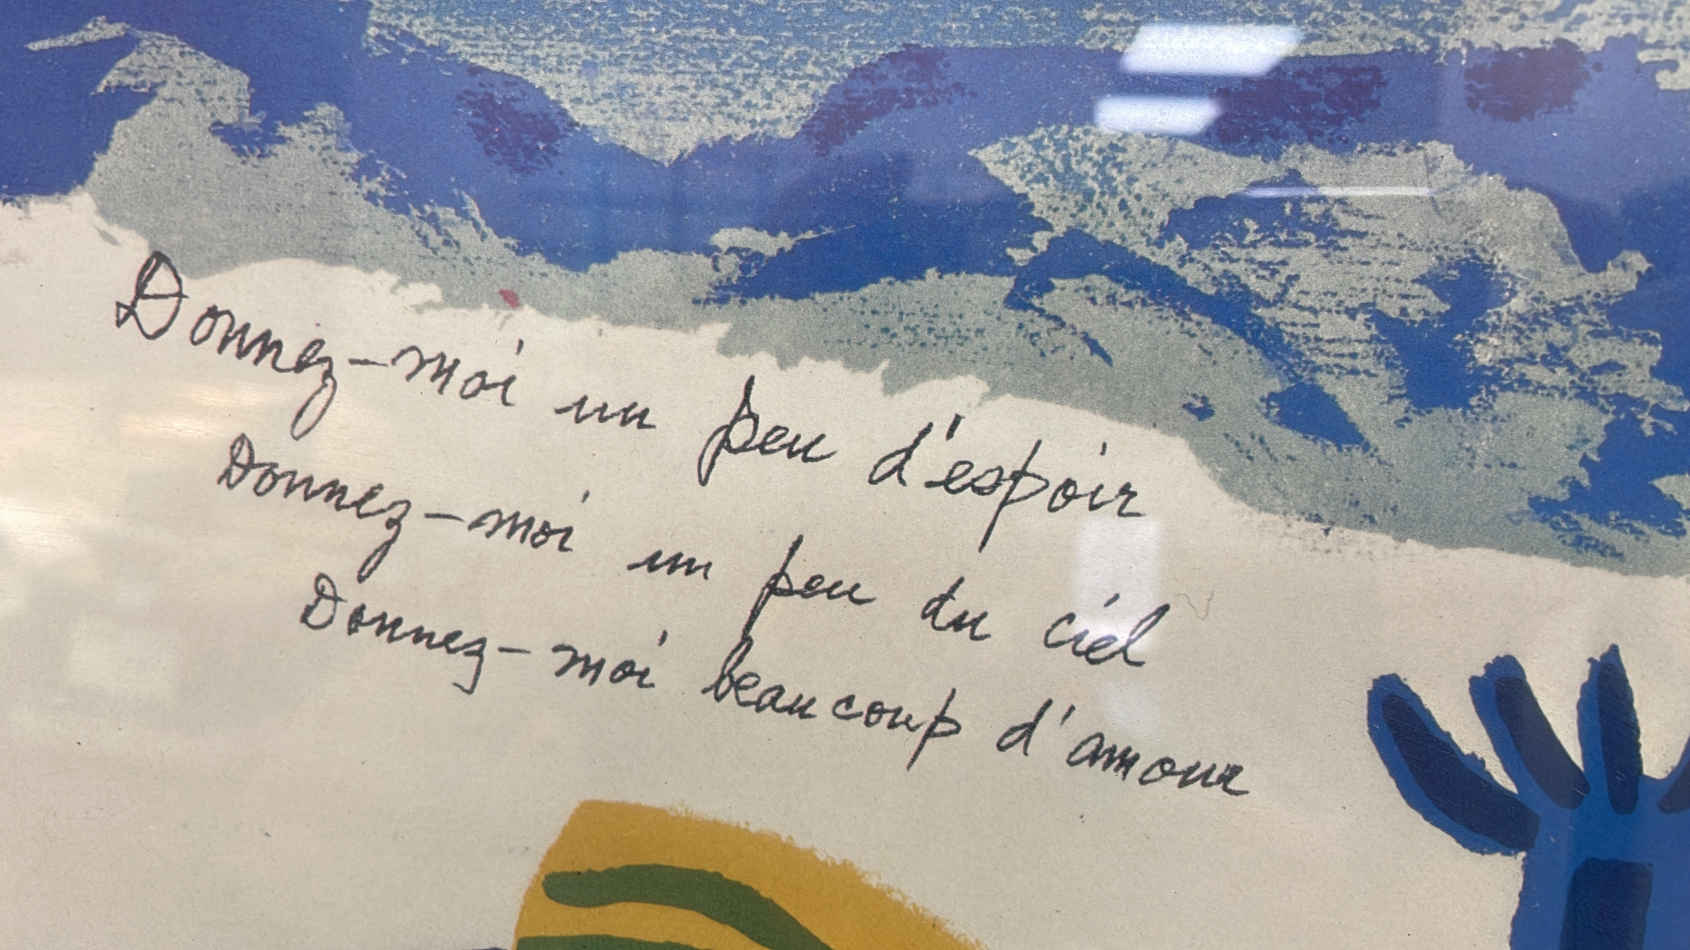 Donnez-moi un peu d'espoir
Donnez-moi un peu du ciel
Donnez-moi beaucoup d'amour